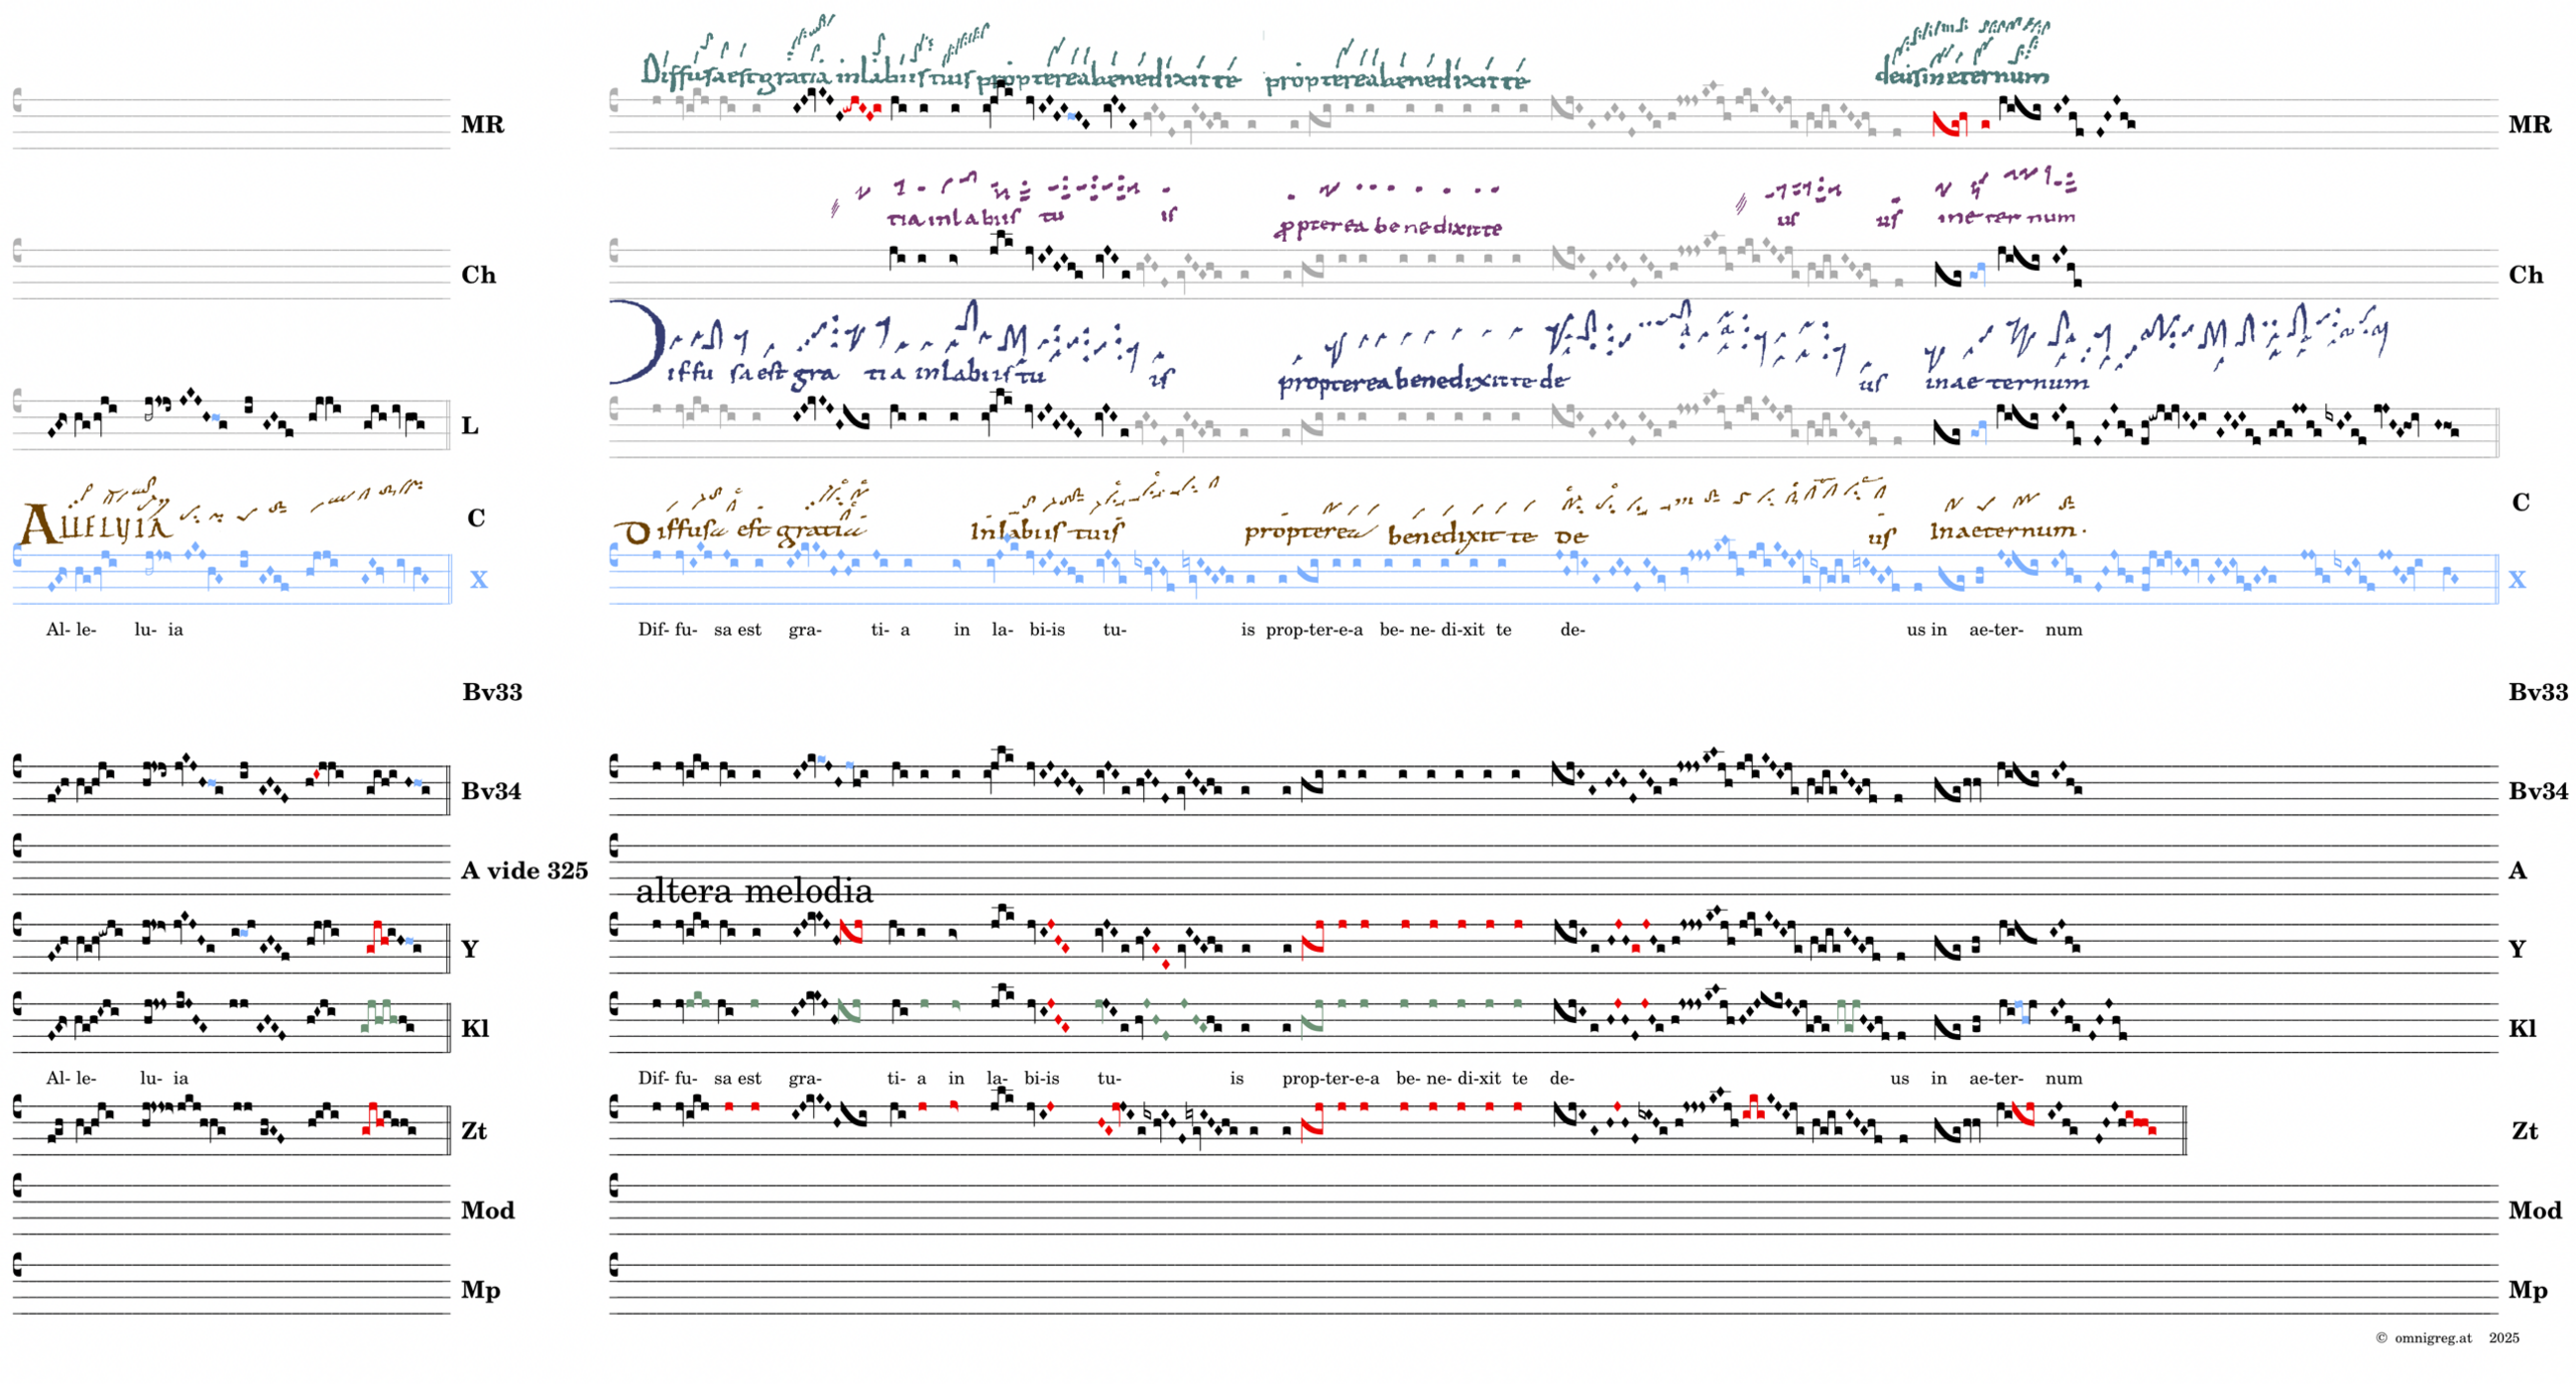 Diffusa est gratia in labiis tuis propterea benedixit te propterea benedixit te deus in eternum
MR MR
tia in labiis tu is ppterea benedixit te us us in eternum
Ch Ch
Diffusa est gratia in labiis tu is propterea benedixit te de us in aeternum
L L
ALLELUIA Diffusa est gratia in labiis tuis propterea benedixit te de us In aeternum.
C C
X X
Al- le- lu- ia Dif- fu- sa est gra- ti- a in la- bi-is tu- is prop-ter-e-a be- ne- di-xit te de- us in ae-ter- num
Bv33 Bv33
Bv34 Bv34
A vide 325 A
altera melodia
Y Y
Kl Kl
Al- le- lu- ia Dif- fu- sa est gra- ti- a in la- bi-is tu- is prop-ter-e-a be- ne- di-xit te de- us in ae-ter- num
Zt Zt
Mod Mod
Mp Mp
© omnigreg.at 2025